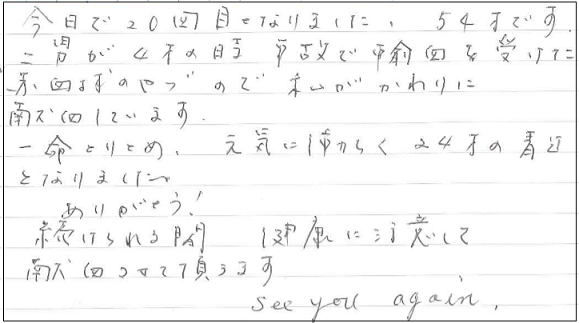 今日で20回目となりました。54才です。
二男が4才の時 事故で輸血を受けた
ので 私がかわりに
献血しています。
一命とりとめ、元気に働らく 24才の青年
となりました
ありがとう!
続けられる間 健康に注意して
献血させて頂きます
See you again.